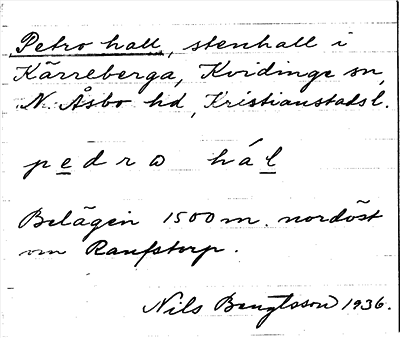 Petro hall, stenhall i
Kärreberga, Kvidinge sn,
N. Åsbo hd, Kristianstads l.
pedra hál
Belägen 1500 m. nordöst
om Ranfstorp.
Nils Bengtsson 1936.